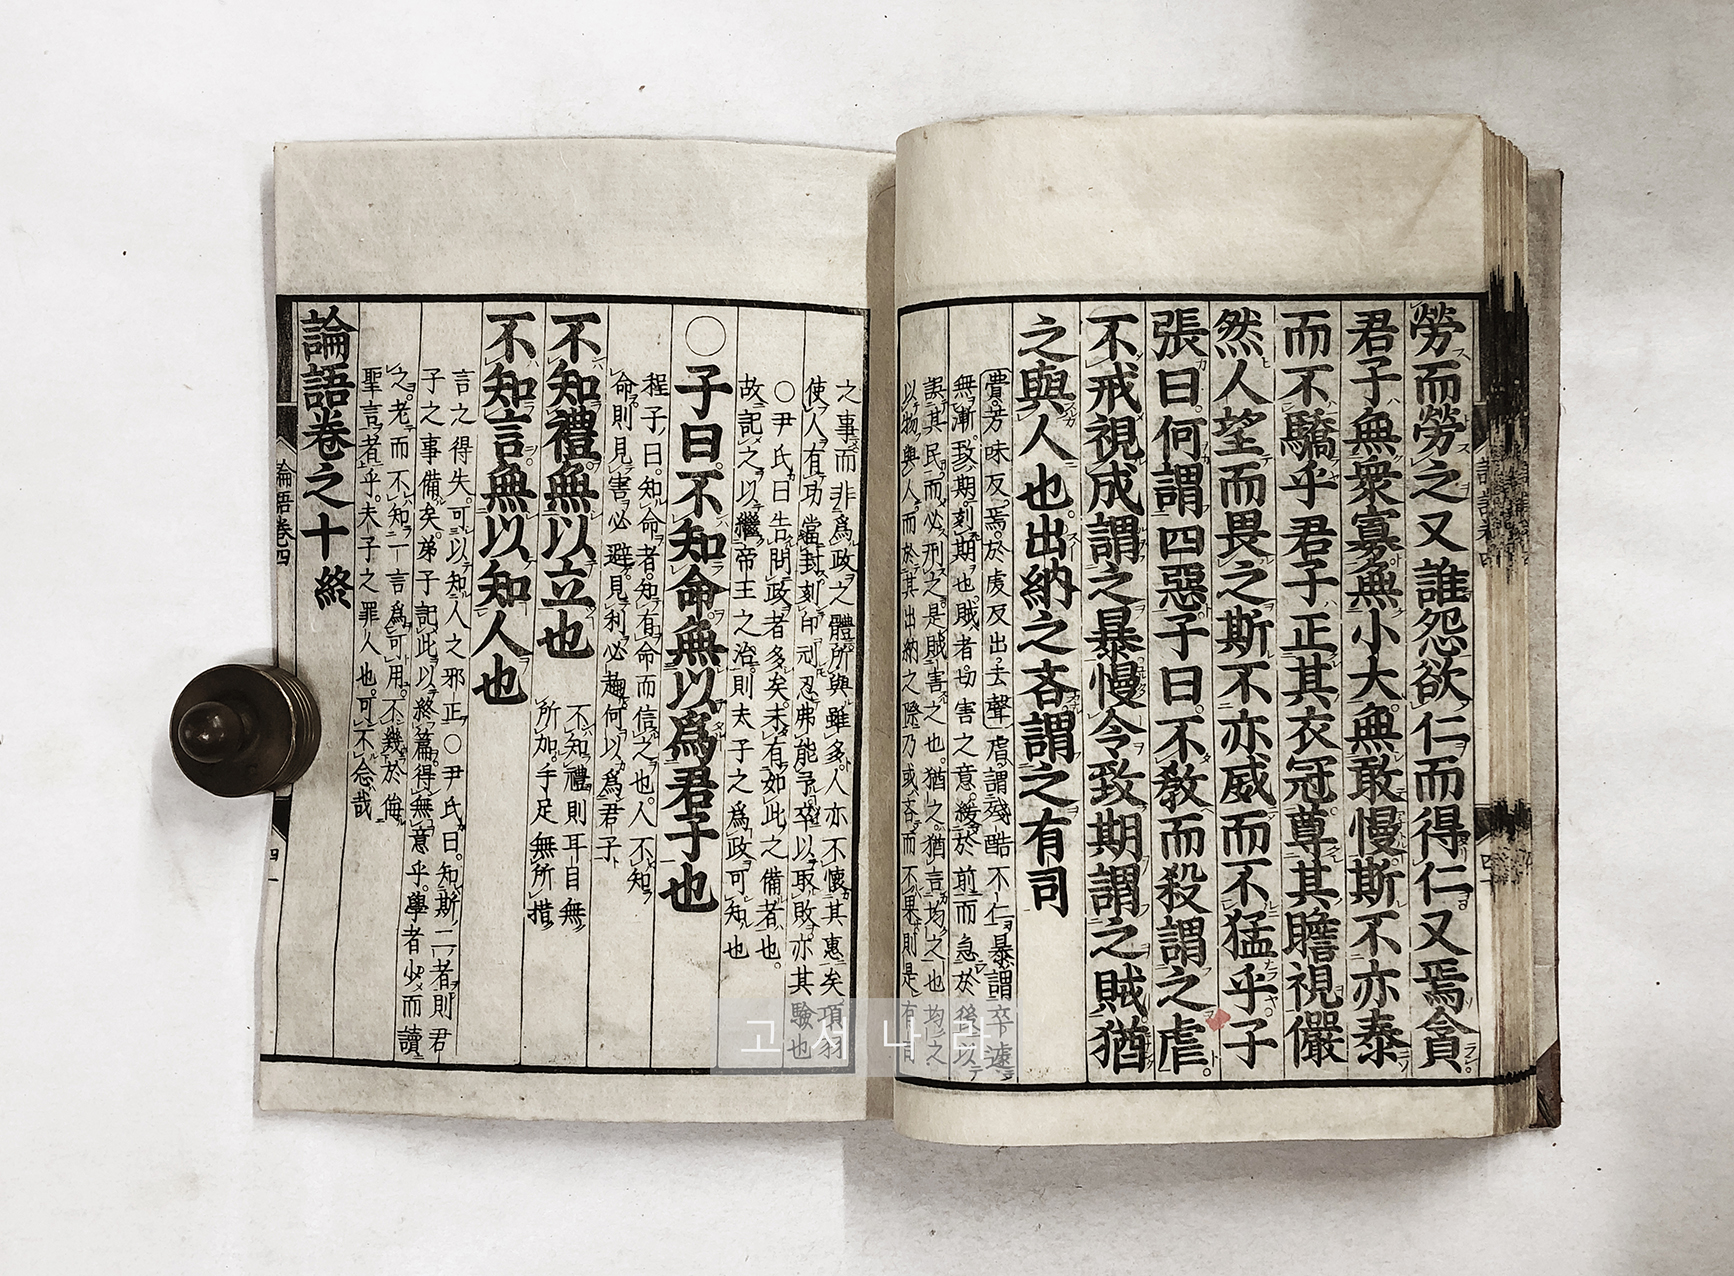 勞而勞之又誰怨欲仁而得仁又焉貪
君子無衆寡無小大無敢慢斯不亦泰
而不驕乎君子正其衣冠尊其瞻視儼
然人望而畏之斯不亦威而不猛乎子
張曰何謂四惡子曰不敎而殺謂之虐
不戒視成謂之暴慢令致期謂之賊猶
之與人也出納之吝謂之有司
費芳味反焉於虔反出去聲虐謂殘酷不仁暴謂卒遽
無漸致期刻期也賊者切害之意緩於前而急於後以
誤其民而必刑之是賊害之也猶之猶言均之也均之
以物與人而於其出納之際乃或吝而不果則是有司
之事而非爲政之體所與雖多人亦不懷其惠矣項羽
使人有功當封刻印刓忍弗能予卒以取敗亦其驗也
○尹氏曰告問政者多矣未有如此之備者也
故記之以繼帝王之治則夫子之爲政可知也
○子曰不知命無以爲君子也
程子曰知命者知有命而信之也人不知
命則見害必避見利必趨何以爲君子
不知禮無以立也
不知禮則耳目無
所加手足無所措
不知言無以知人也
言之得失可以知人之邪正○尹氏曰知斯三者則君
子之事備矣弟子記此以終篇得無意乎學者少而讀
之老而不知一言爲可用不幾於侮
聖言者乎夫子之罪人也可不念哉
論語卷之十 終
論語卷四
四一
고서나라